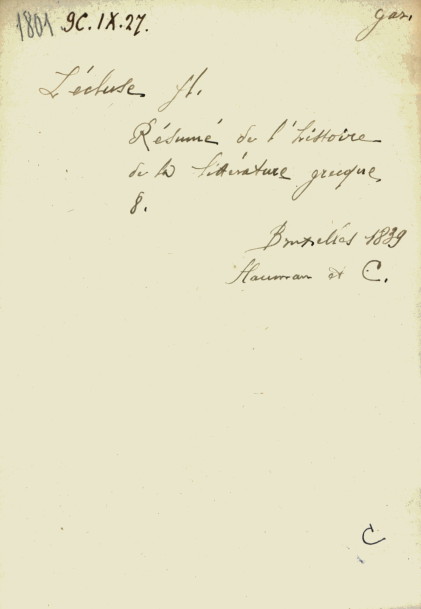 1801 9C.IX.27.
gar.
L'écluse fl.
Résumé de l'histoire
de la littérature grecque
8.
Bruxelles 1839
Hauman et C.
C